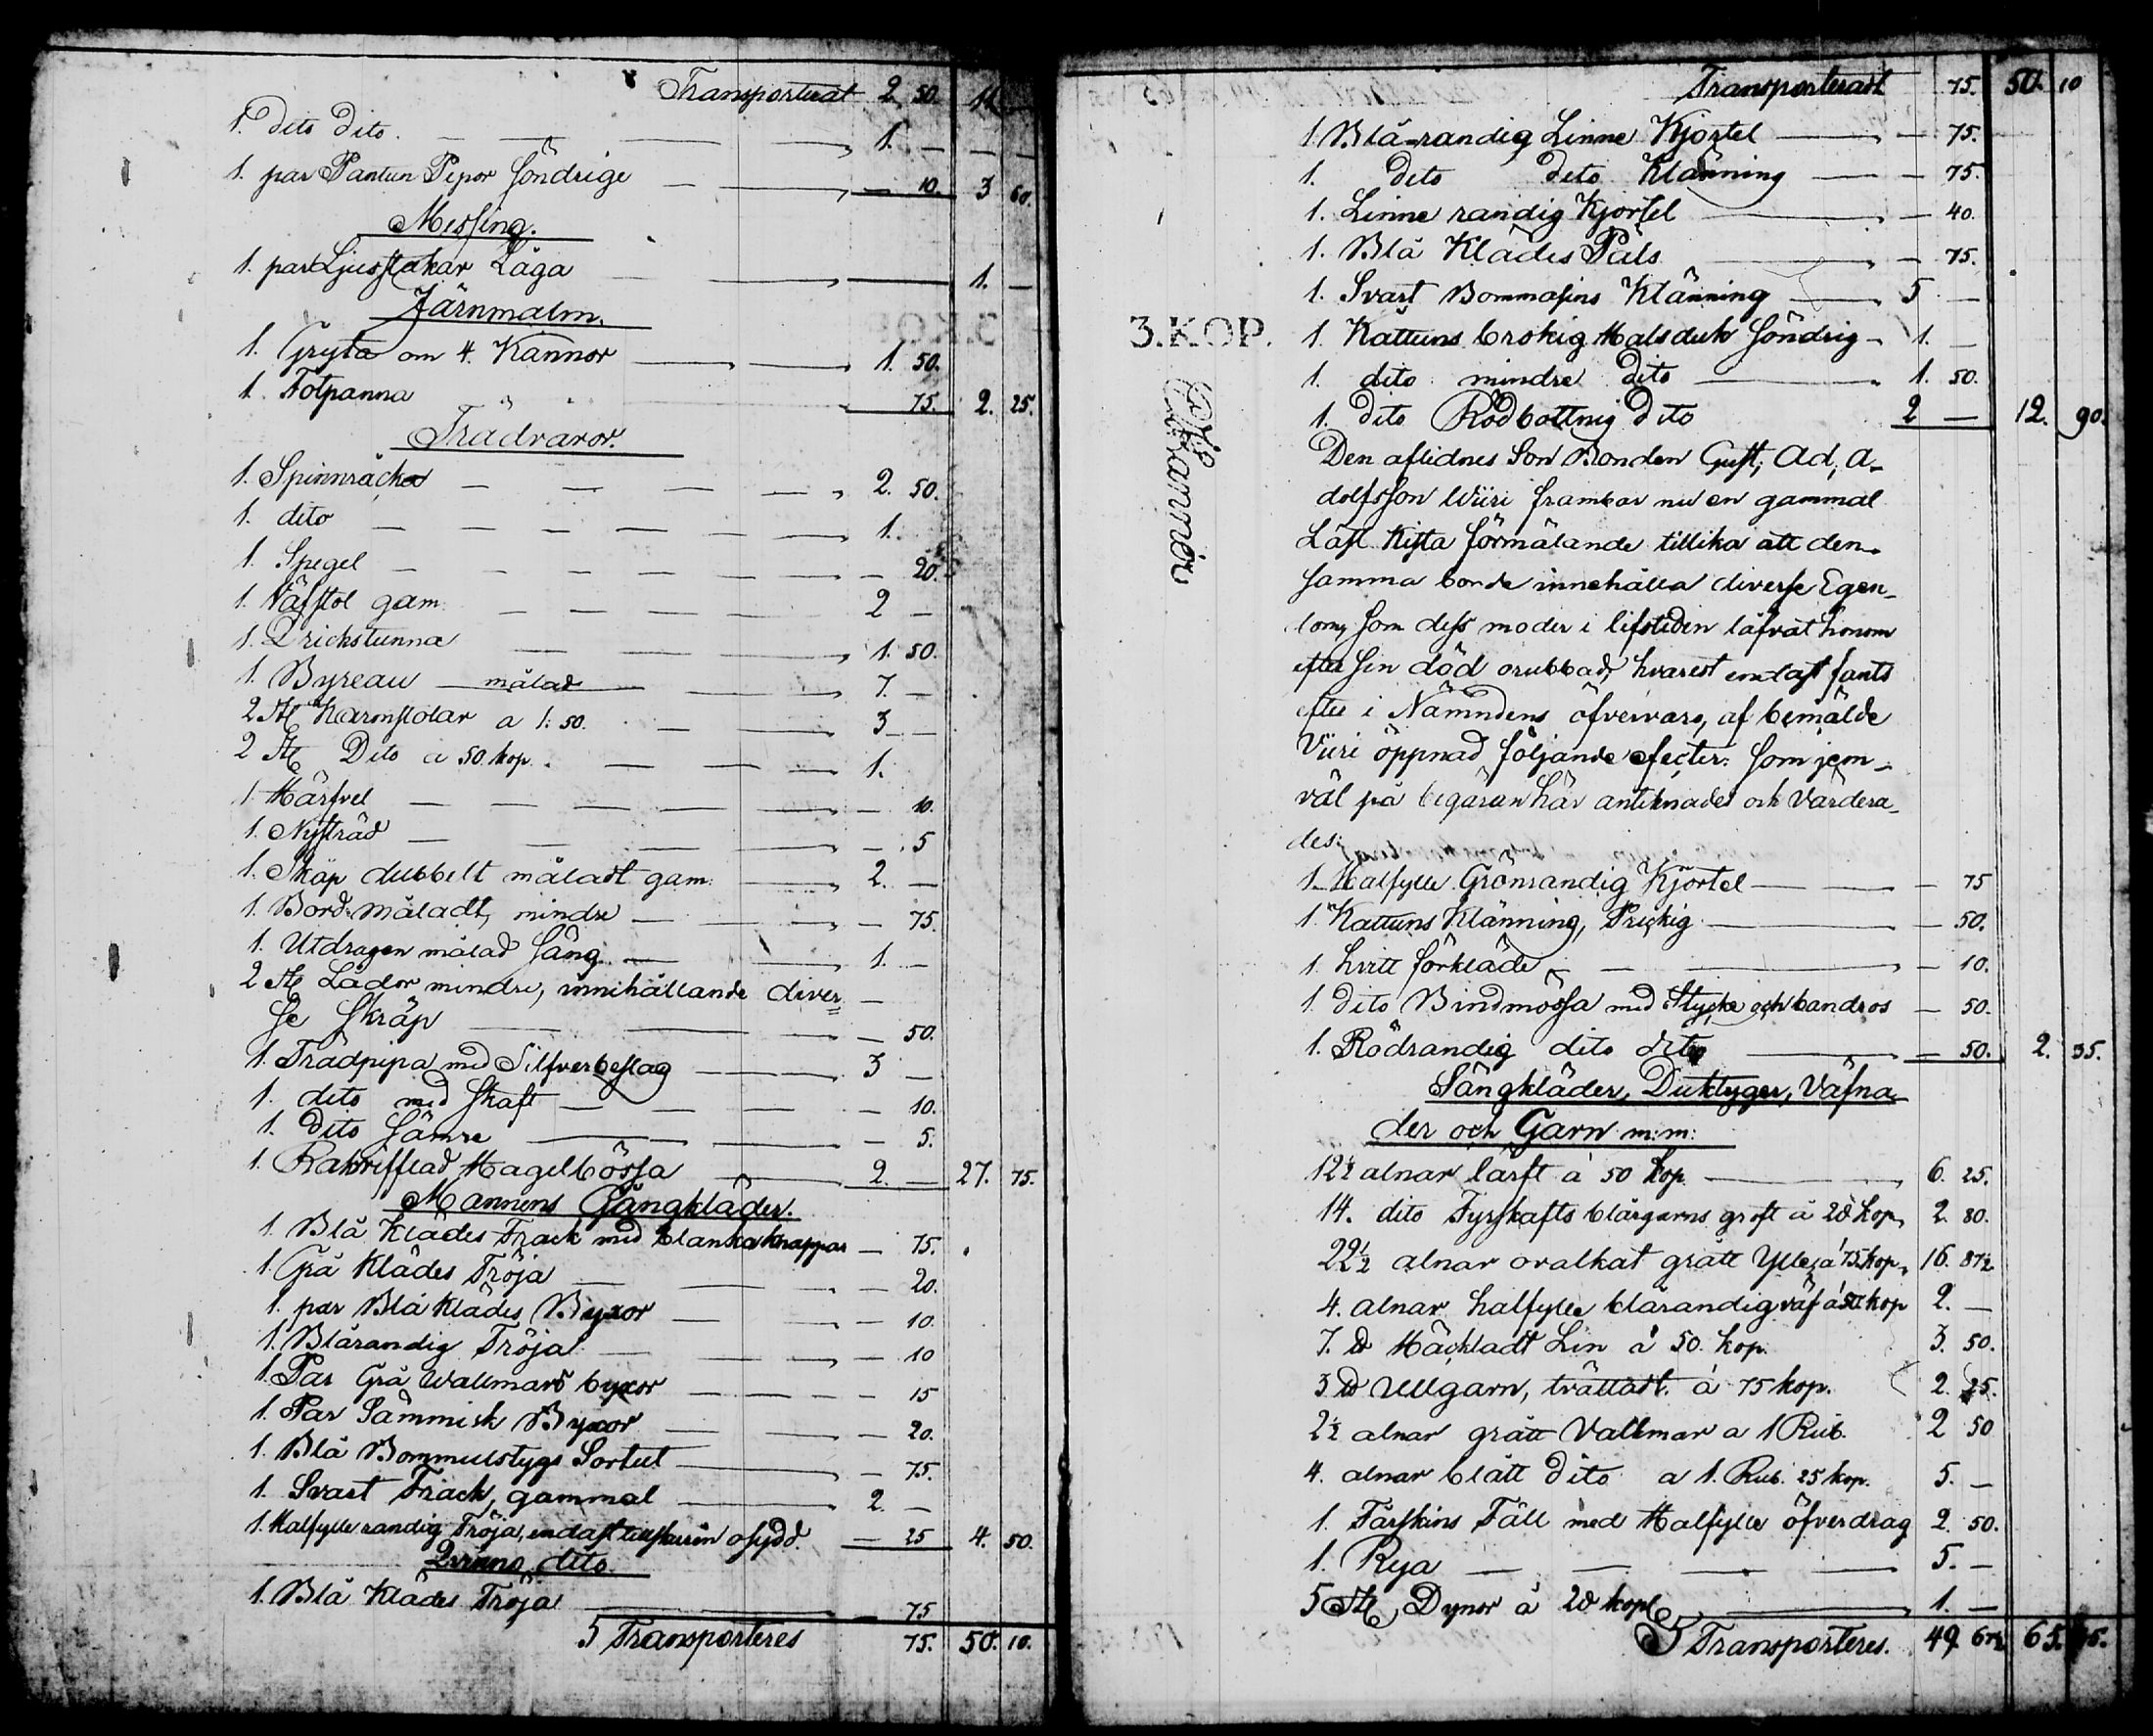 Transporterat 2 50. 11 —
1. dito dito. — — — — 1. — — —
1. par Pantun Pepor söndrige — — — 10. 3 60.
Messing.
1. par Ljusstakar Låga — — 1. —
Järnmalm.
1. Gryta om 4. Kannor — — 1. 50.
1. Fotpanna 75. 2. 25.
Trädvaror.
1. Spinnråcka — — — — 2. 50.
1. dito — — — — — 1.
1. Spegel — — — — — — 20.
1. Väfstol gam. — — — — 2 —
1. Drickstunna — — — 1. 50.
1. Byreau målad — — 7. —
2 St Karmstolar a 1: 50. — — 3 —
2 St Dito a 50 kop. — — — 1.
1. Härfvel — — — — — 10.
1. Nystträd — — — — — 5
1. Skåp dubbelt måladt gam: — 2. —
1. Bord måladt, mindre — — — 75.
1. Utdragen målad Säng. — — 1. —
2 St Lådor mindre, innehållande diver= —
se skräp — — — — 50.
1. Trädpipa med Silfverbeslag — — 3 —
1. dito med skaft — — — — 10.
1. Dito Sämre — — — 5.
1. Rakrifflad Hagelbössa — 2. — 27. 75.
Mannens Gångkläder.
1. Blå Klädes Frack med blanka knappar — 75.
1. Grå Klädes Tröja — — — 20.
1. par Blå klädes Byxor — — — 10.
1. Blårandig Tröja — — — 10
1. Par Grå Wallmars byxor — — — — 15
1. Par Sämmisk Byxor — — — 20.
1. Blå Bommulstygs Sortut — — — 75.
1. Svart Frack, gammal — — 2. —
1. Halfylle randig Tröja, endast tillskuren osydd. — 25 4. 50.
Qvinno dito.
1. Blå Klädes Tröja — — 75
Transporteres 75. 50. 10.
Transporteradt 75. 50. 10
1. Blå-randig Linne Kjortel — — 75.
1. dito dito Klänning — — 75.
1. Linne randig Kjortel — — 40.
1. Blå Klädes Päls — — 75.
1. Svart Bommasins Klänning — 5 —
3. KOP.
1. Kattuns brokig Halsduk söndrig — 1. —
1. dito mindre dito — 1. 50.
1. dito Rödbottnig dito 2 — 12. 90.
Den aflidnes Son Bonden Gust, Ad, A-
dolfsson Wiiri frambar nu en gammal
Låst Kista förmälande tillika att den-
samma borde innehålla diverse Egen-
dom, som dess moder i lifstiden låfvat honom
efter sin död orubbad, hvarest endast fants
efter i Nämndens öfvervaro, af bemälde
Viiri öppnad följande efecter: som jem-
väl på begäran här antiknades och Värdera-
des:
1. Halfylle Grönrandig Kjortel — — — 75
1. Kattuns Klänning, Prickig — — 50.
1. hvitt förkläde — — — 10.
1. dito Bindmössa med Stycke och bandros — 50.
1. Rödrandig dito dito — — 50. 2. 35.
Sängkläder, Duktyger, Väfna-
der och Garn m:m:
12½ alnar lärft á 50 kop. — 6. 25.
14. dito Fyrskafts blårgarns groft á 20 kop, 2. 80.
22½ alnar ovalkat grått Ylle á 75 kop, 16. 87½
4. alnar halfylle blårandig väf á 50 kop 2. —
7. ℔ Häckladt Lin á 50. kop. 3. 50.
3 ℔ Ullgarn, tvättadt. á 75 kop. 2. 25.
2½ alnar grått Vallmar a 1 Rub. 2 50
4. alnar blått dito a 1. Rub. 25 kop. 5. —
1. Fårskins Fäll med Halfylle öfverdrag 2. 50.
1. Rya — — — — 5. —
5 St, Dynor á 20 kop — 1. —
Transporteres. 49 67½ 65.